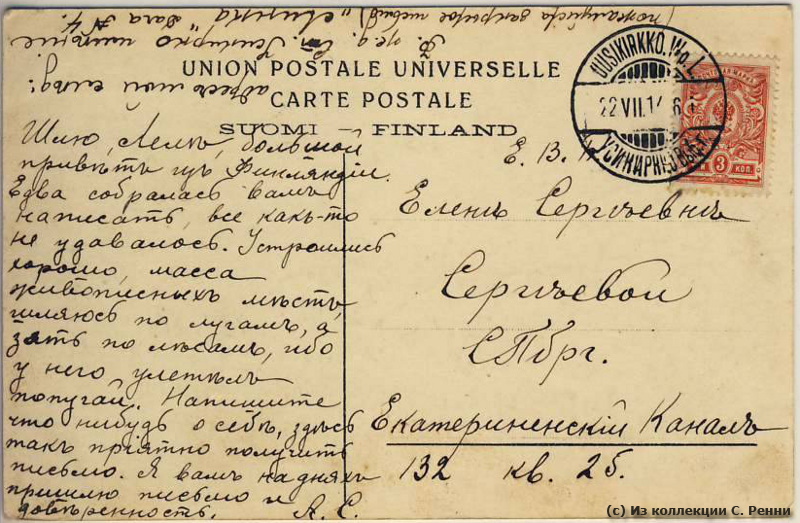 (пожалуйста закрытое письмо) "свинка
Ф. ж. д. Ст. Усикирко имѣніе
Дача № 4.
адресъ мой слѣд:
UNION POSTALE UNIVERSELLE
CARTE POSTALE
SUOMI — FINLAND
UUSIKIRKKO. W.L.
22 VII. 14 6
УСИКИРКО ВЫБ. Г.
3 КОП.
Шлю, Лелѣ, большой
привѣтъ изъ Финляндіи.
Едва собралась вамъ
написать, все какъ-то
не удавалось. Устроились
хорошо, масса
живописныхъ мѣстъ,
шляюсь по лугамъ, а
зять по лѣсамъ, ибо
у него улетѣлъ
попугай. Напишите
что нибудь о себѣ, здѣсь
такъ пріятно получить
письмо. Я вамъ на дняхъ
пришлю письмо и
довѣренность. А. С.
Е. В.
Еленѣ Сергѣевнѣ
Сергѣевой
СПбрг.
Екатериненскій Каналъ
132 кв. 25.
(с) Из коллекции С. Ренни